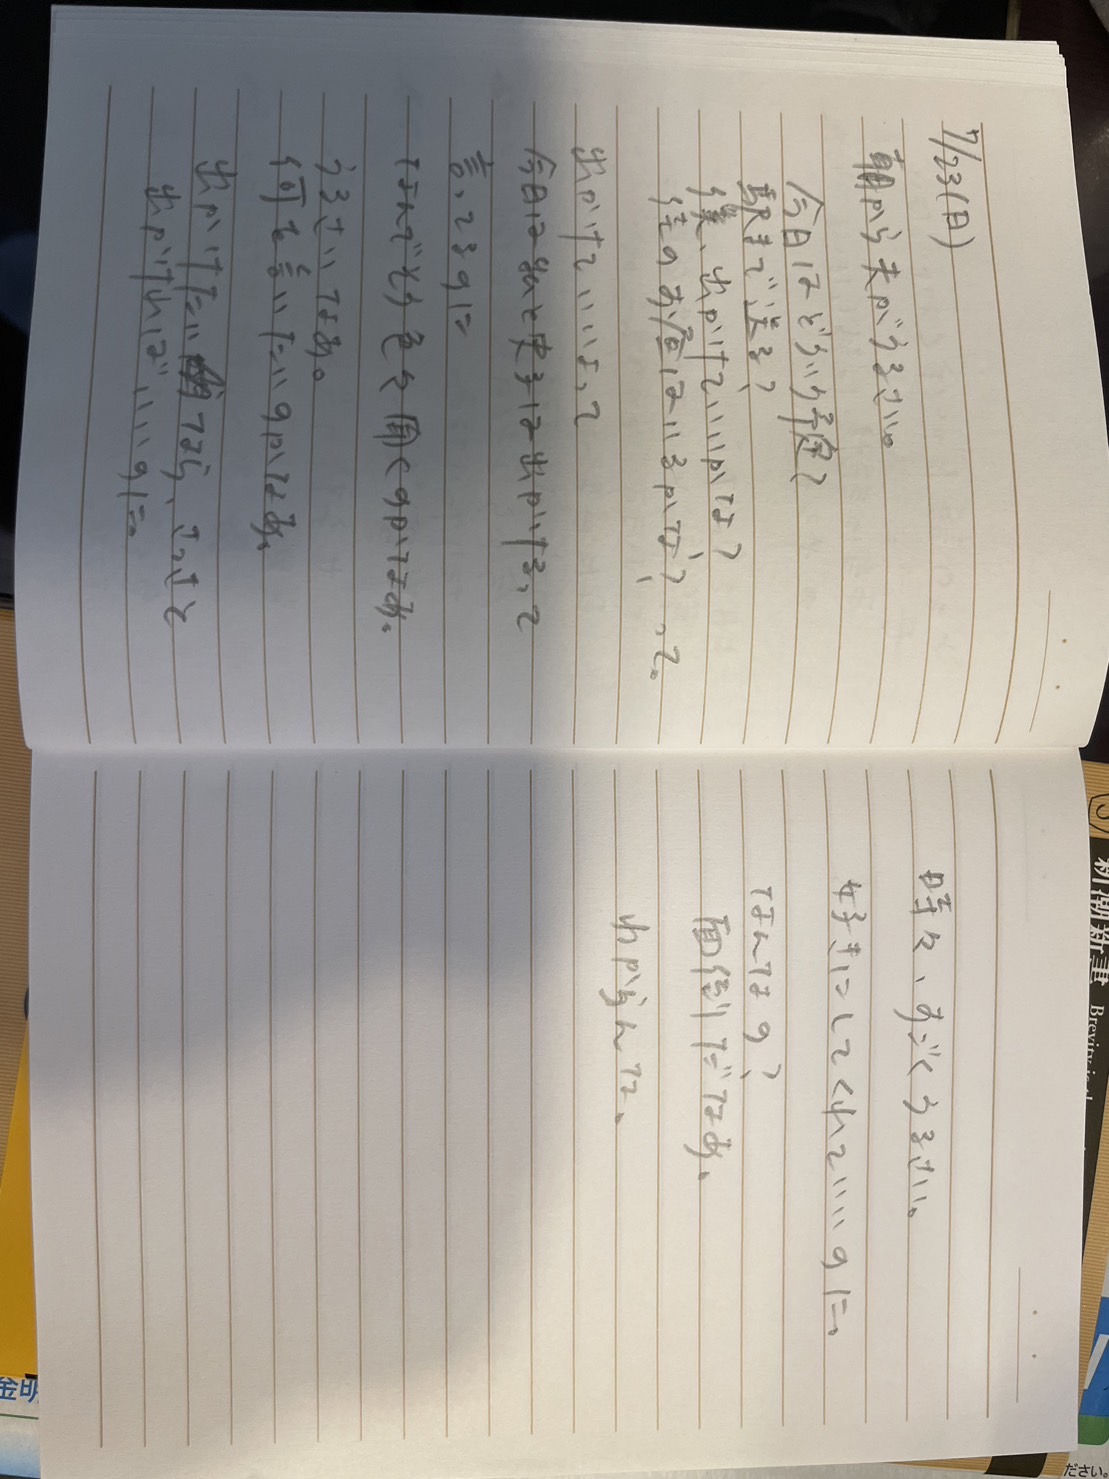 7/23(日)
朝から夫がうるさい。
今日はどういう予定？
駅まで送る？
僕、出かけていいかな？
待のお昼はいるかな？って。
出かけていいよ、って
今日は私と史子は出かける、って
言ってるのに
なんでそう色々聞くのかなあ。
うるさいなあ。
何を言いたいのかなあ。
出かけたいなら、さっさと
出かければいいのに。
時々、すごくうるさい。
好きにしてくれていいのに。
なんなの？
面倒だなあ。
わからんな。
新潮新書
Brevity is
金明
ださい。